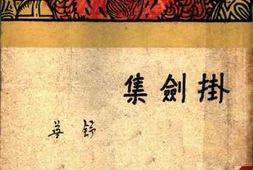 掛劍集
舒蕪